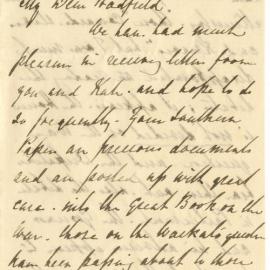 My Dear Hadfield.
We have had much
pleasure in receiving letters from
you and Kate. and hope to do
so frequently. Your Southern
Papers are precious documents
and are posted up with great
care. into the Great Book on the
War. those on the Waikato question
have been passing about to those